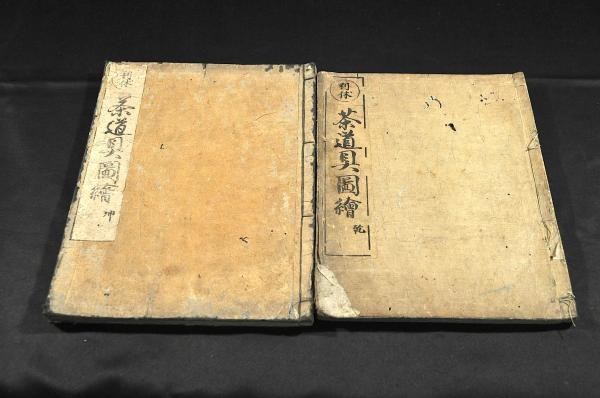 利休
茶道具圖繪
乾
利休
茶道具圖繪
坤